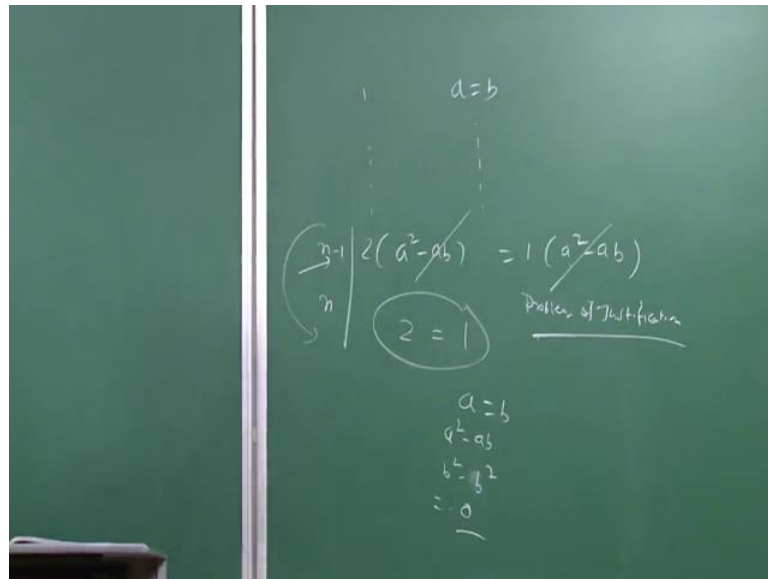 1 a = b
n-1 2(a² - ab) = 1(a² - ab)
n
Problem of Justification
2 = 1
a = b
a² - ab
b² - b²
= 0